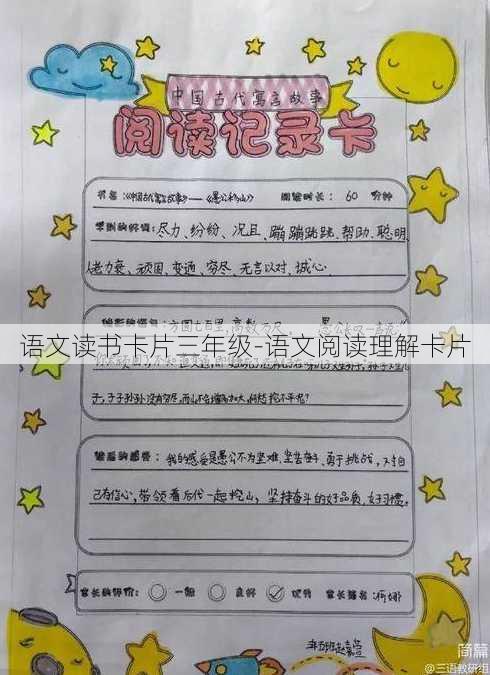 中国古代寓言故事
阅读记录卡
书名：《中国古代寓言故事》——《愚公移山》 阅读时长： 60 分钟
学到的好词：尽力、纷纷、况且、蹦蹦跳跳、帮助、聪明、
人老力衰、顽固、变通、穷尽、无言以对、诚心
方圆七百里，高数万尺，
语文读书卡片三年级-语文阅读理解卡片
子，子子孙孙没有穷尽，而山不会增高加大，何愁挖不平呢？
读后的感想：我的感受是愚公不为艰难，坚苦奋斗，勇于挑战，对自
己有信心，带领着后代一起挖山，坚持奋斗的好品质、好习惯。
家长的评价： 一般 良好 优秀 家长签名：
简篇
@三语教研组